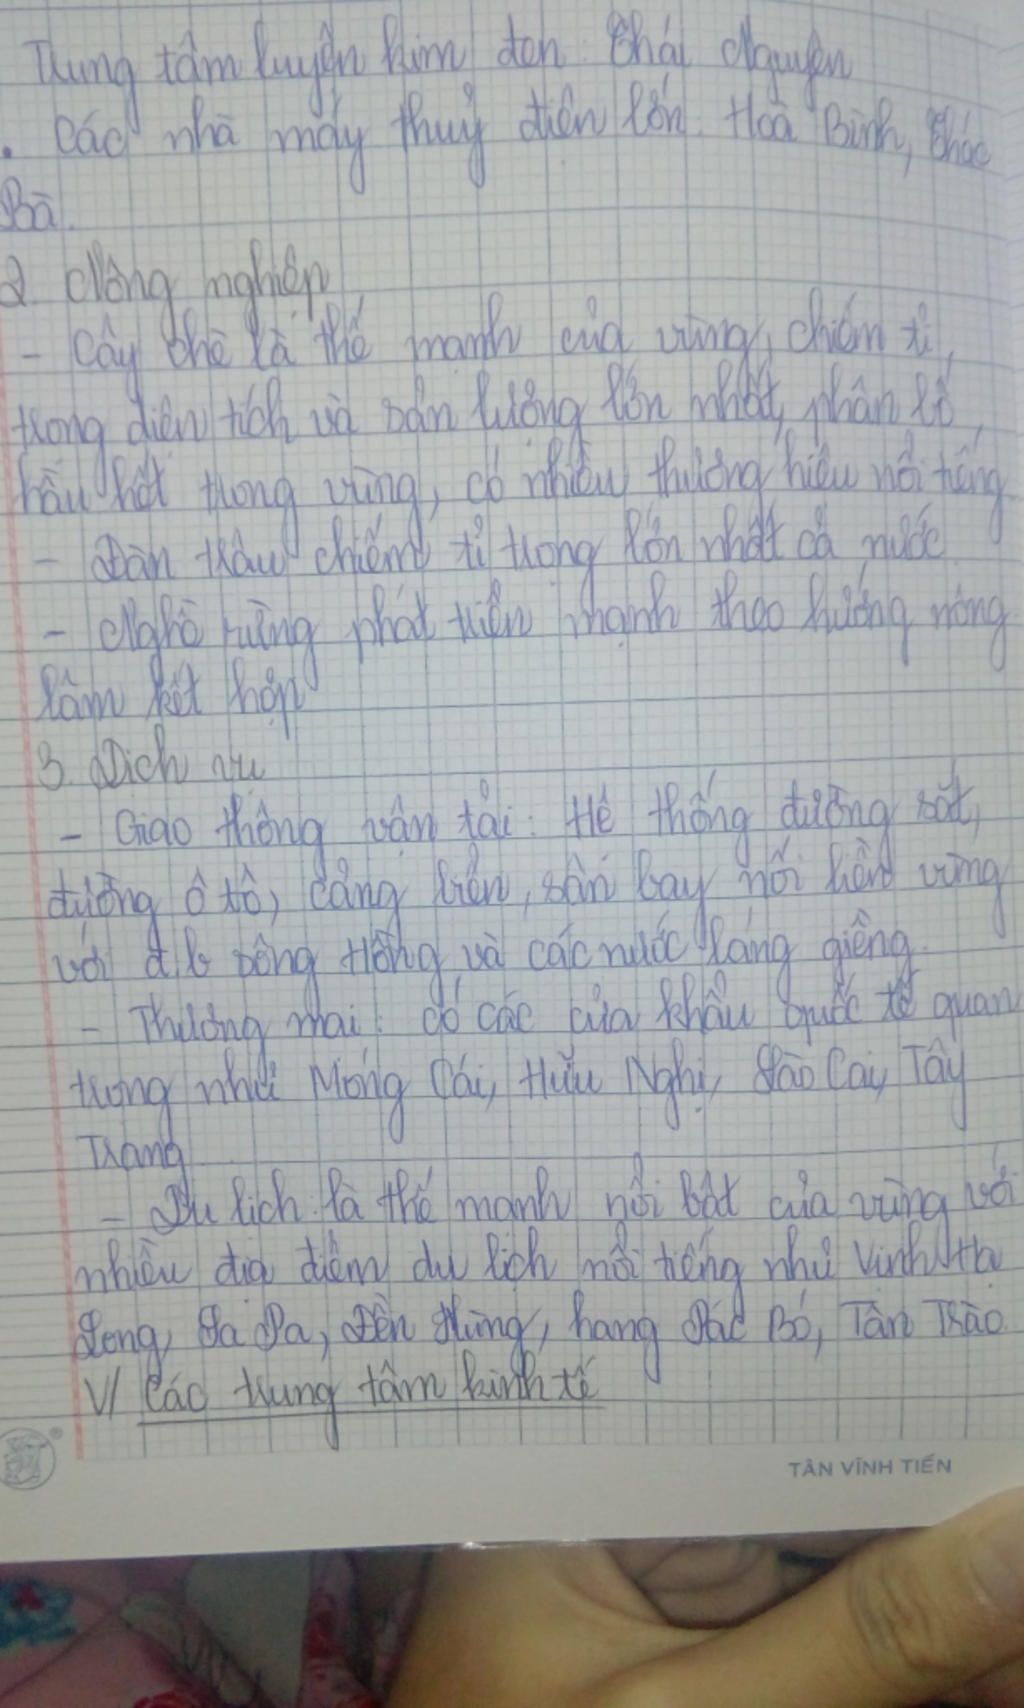 Trung tâm luyện kim đen Thái Nguyên
. Các nhà máy thuỷ điện lớn. Hoà Bình, Thác
Bà.
2 Nông nghiệp
- Cây chè là thế mạnh của vùng, chiếm tỉ
trọng diện tích và sản lượng lớn nhất, phân bố
hầu hết trong vùng, có nhiều thương hiệu nổi tiếng
- Đàn trâu chiếm tỉ trọng lớn nhất cả nước
- Nghề rừng phát triển mạnh theo hướng nông
lâm kết hợp
3. Dịch vụ
- Giao thông vận tải: Hệ thống đường sắt,
đường ô tô, cảng biển, sân bay nối liền vùng
với đ.b sông Hồng và các nước láng giềng.
- Thương mại: có các cửa khẩu quốc tế quan
trọng như Móng Cái, Hữu Nghị, Lào Cai, Tây
Trang
- Du lịch: là thế mạnh nổi bật của vùng với
nhiều địa điểm du lịch nổi tiếng như Vịnh Hạ
Long, Sa Pa, Đền Hùng, hang Pác Bó, Tân Trào
V/ Các trung tâm kinh tế
TÂN VĨNH TIẾN